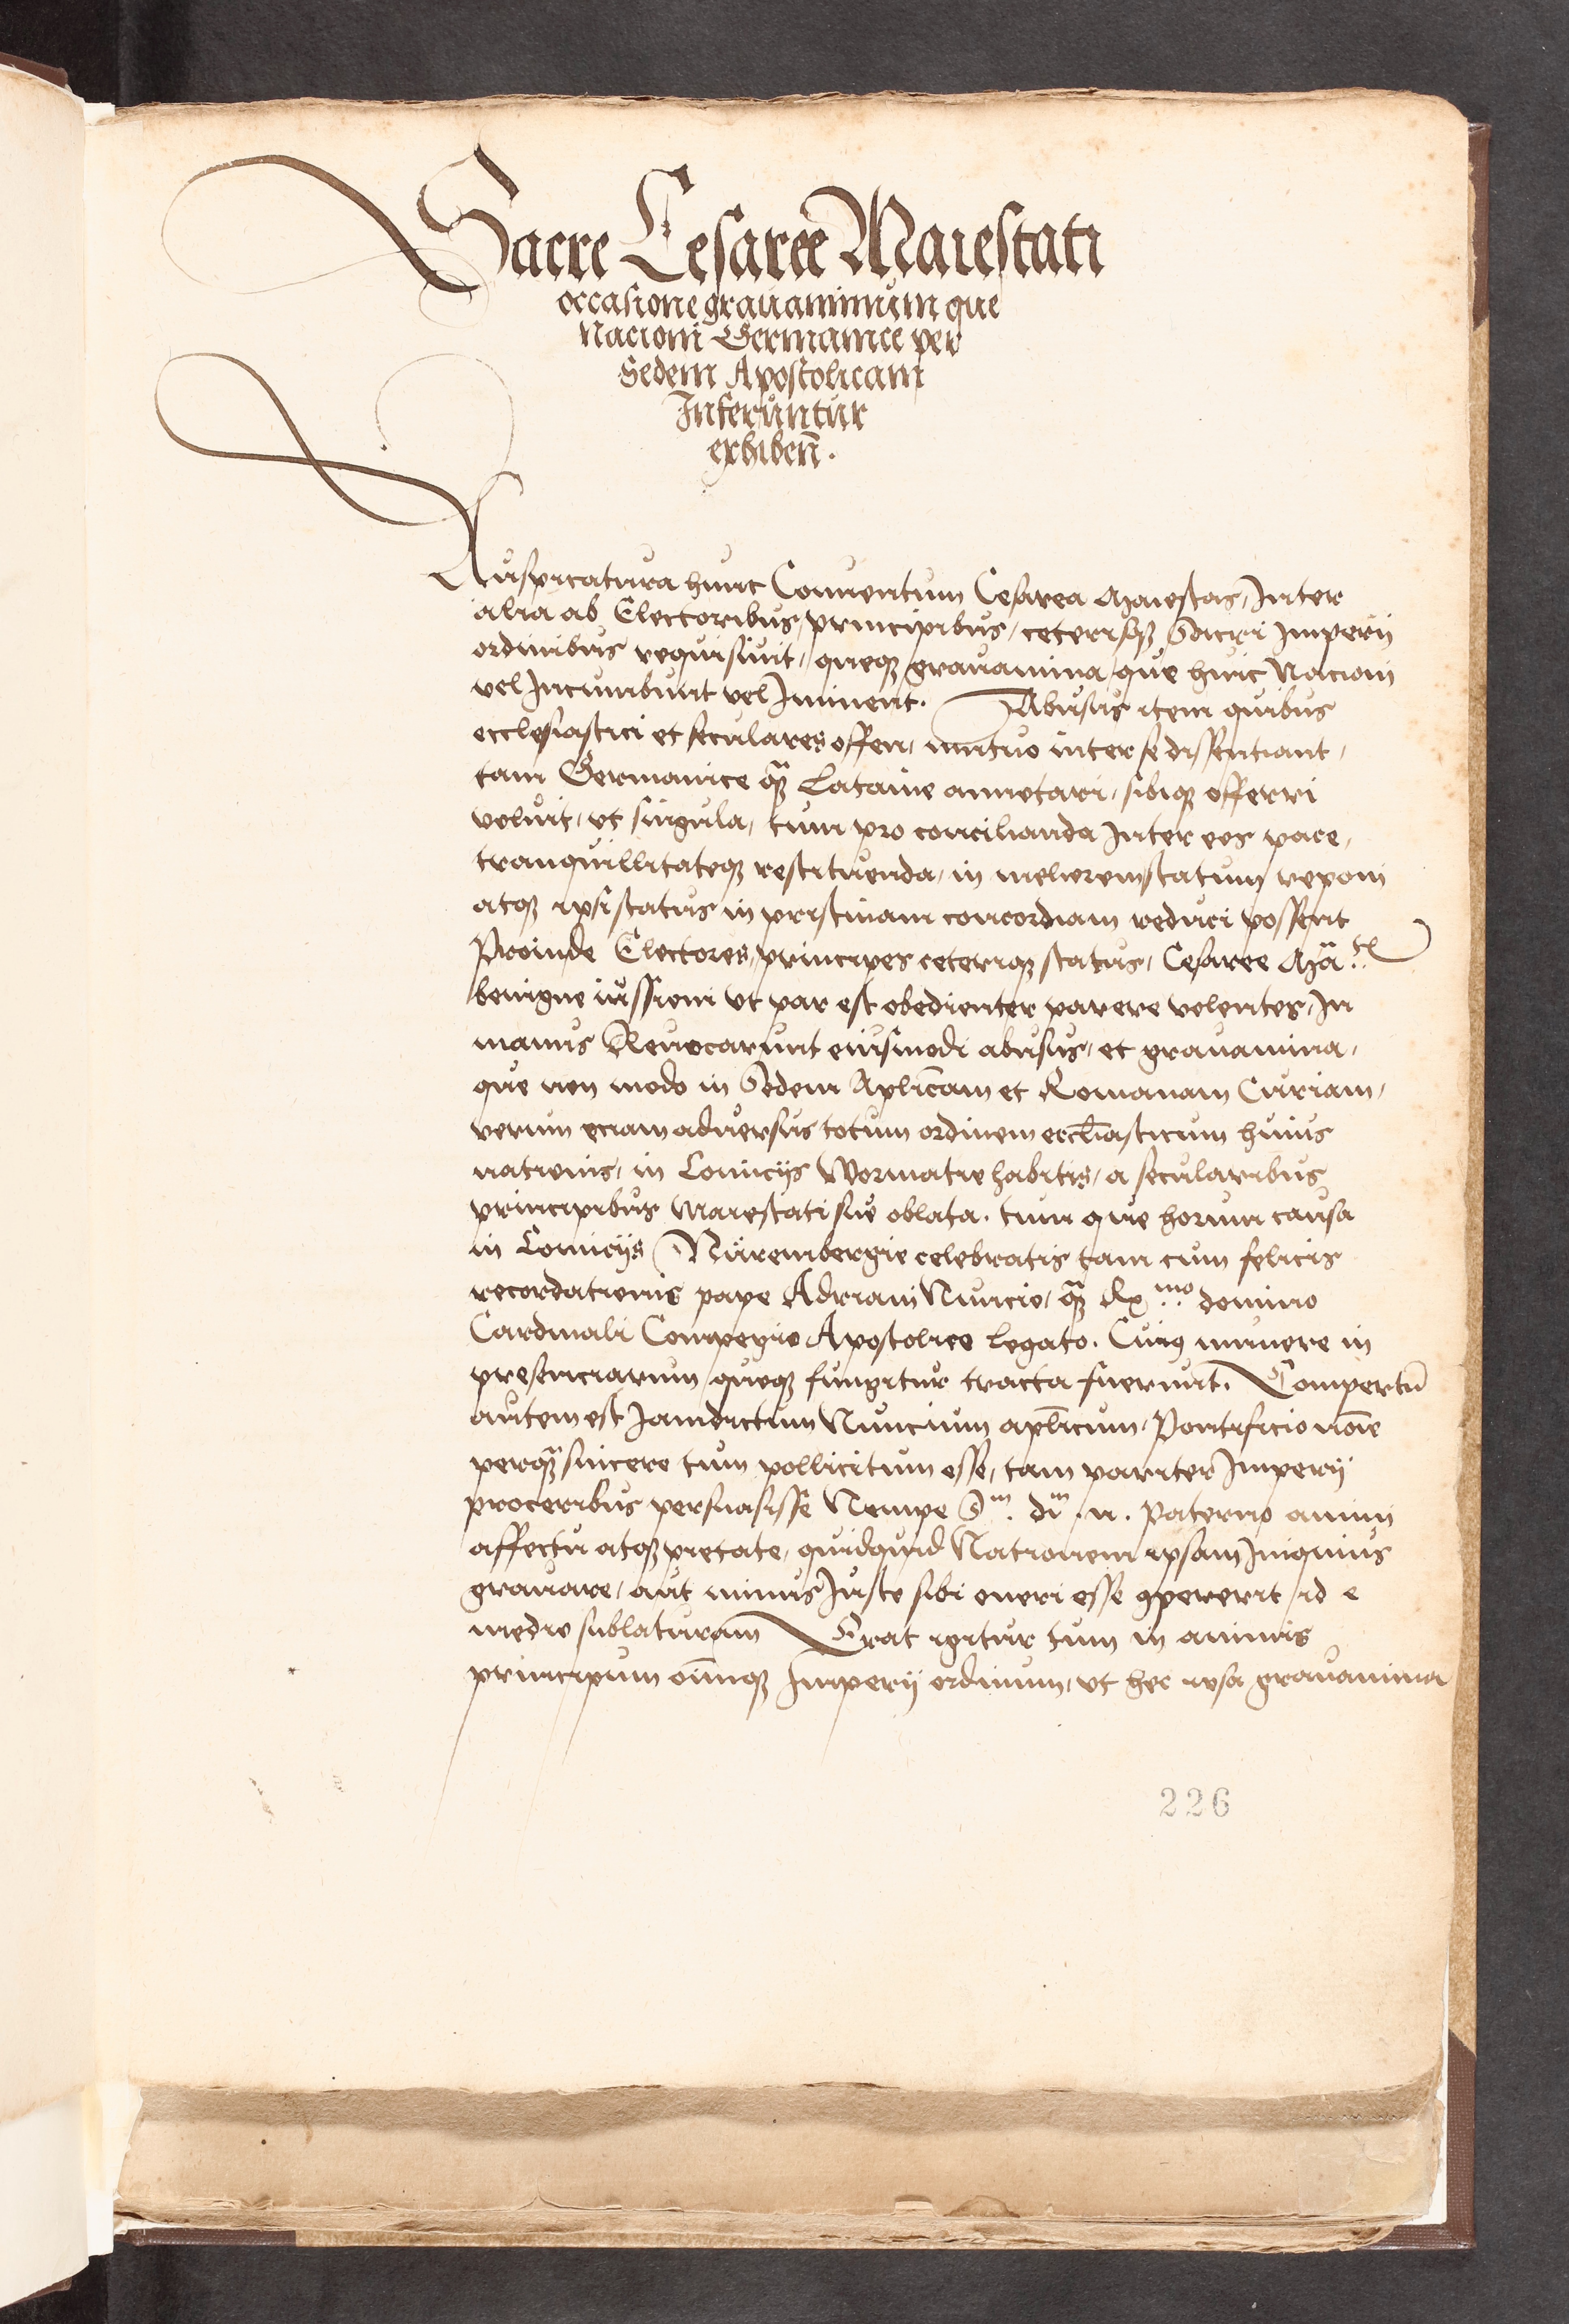 Sacre Cesaree Maiestati
occasione grauaminum que
Nacioni Germanice per
Sedem Apostolicam
Inferuntur
exhiben̄.
Auspicatura hunc Conuentum Cesarea Maiestas, Inter
alia ab Electoribus, principibus, ceterisqꝫ Sacri Imperij
ordinibus requisiuit, queqꝫ grauamina, que huic Nacioni
vel Incumbunt vel Iminent. Abusus item quibus
ecclesiastici et seculares offen, mutuo inter se dissentiant,
tam Germanice qꝫ̄ Latine annotari, sibiqꝫ offerri
voluit, vt singula, tum pro concilianda Inter eos pace,
tranquillitateqꝫ restituenda, in meliorem statum reponi
atqꝫ ipsi status in pristinam concordiam reduci possent
Proinde Electores, principes ceteriqꝫ status, Cesaree Ma.
benigne iussioni vt par est obedienter parere volentes, In
manus Reuocarunt eiusmodi abusus, et grauamina,
que non modo in Sedem Aplicam̄ et Romanam Curiam,
verum eciam aduersus totum ordinem eccl̄iasticum huius
nationis, in Comicijs Wormatie habitis, a secularibus
principibus Maiestati sue oblata. tum que horum causa
in Comicijs Nurembergie celebratis tam cum felicis
recordationis pape Adriani Nuncio, qꝫ̄ Rᵐᵒ domino
Cardinali Compegio Apostolico legato. Cuiꝰ munere in
presenciarum queqꝫ fungitur tracta fuerunt. Compertū
autem est Iamdictum Nuncium apl̄icum, Pontificio noīe
perqꝫ̄ sincere tum pollicitum esse, tam pariter Imperij
proceribus persuasisse Nempe Sᵐ. dm̄. n. Paterno animi
affectu atqꝫ pietate, quidquid Nationem ipsam Iniquius
grauare, aut minus Iuste sibi oneri esse ꝯpererit id e
medio sublaturam Erat igitur tum in animis
principum oīmqꝫ Imperij ordinum, vt hec ipsa grauamina
226